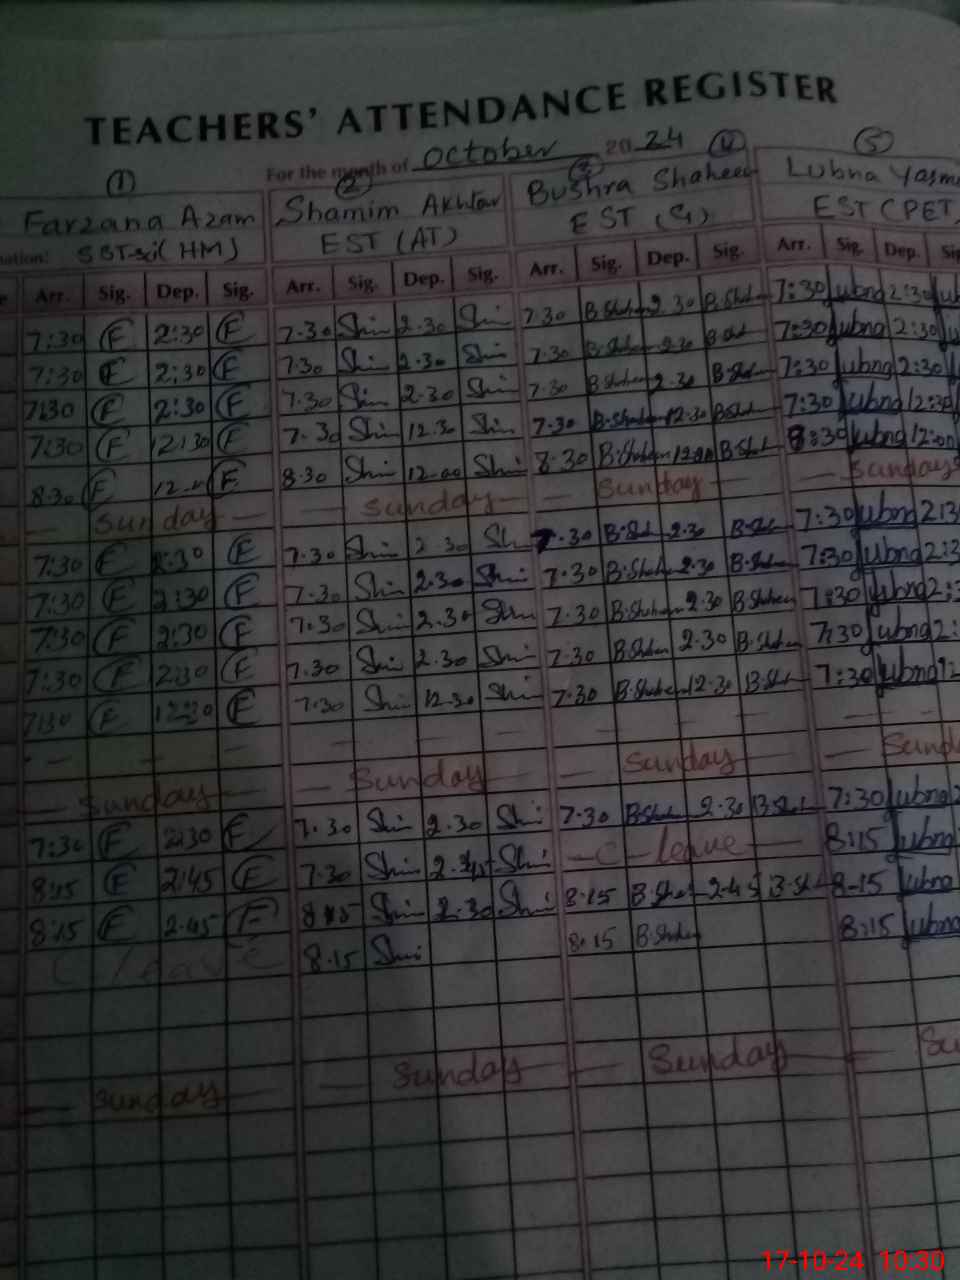 TEACHERS' ATTENDANCE REGISTER
For the month of October 2024
① ② ③ ④ ⑤
Farzana Azam Shamim Akhtar Bushra Shaheen Lubna Yasm
nation: SST-sci (HM) EST (AT) EST (G) EST (PET
Arr. Sig. Dep. Sig. Arr. Sig. Dep. Sig. Arr. Sig. Dep. Sig. Arr. Sig. Dep. Sig
7:30 F 2:30 F 7.30 Shm 2.30 Shm 7.30 B.Shaheen 2.30 B.Shaheen 7:30 Lubna 2:30
7:30 F 2:30 F 7.30 Shm 2.30 Shm 7.30 B.Shaheen 2.30 7:30 Lubna 2:30
7:30 F 2:30 F 7.30 Shm 2.30 Shm 7.30 B.Shaheen 2.30 7:30 Lubna 2:30
7:30 F 12:30 F 7.30 Shm 12.30 Shm 7.30 B.Shaheen 12.30 7:30 Lubna 12:30
8.30 F F 8.30 Shm 12.00 Shm 8.30 B.Shaheen 12.00 8:30 Lubna 12:00
— Sunday — — Sunday — — Sunday — Sunday
7:30 F 2:30 F 7.30 Shm 2.30 7.30 2.30 7:30 Lubna 2:3
7:30 F 2:30 F 7.30 Shm 2.30 Shm 7.30 B.Shaheen 2.30 B.Shaheen 7:30 Lubna 2:3
7:30 F 2:30 F 7.30 Shm 2.30 Shm 7.30 B.Shaheen 2.30 B.Shaheen 7:30 Lubna 2:
7:30 F 2:30 F 7.30 Shm 2.30 Shm 7.30 B.Shaheen 2.30 B.Shaheen 7:30 Lubna 2:
7:30 F 12:30 F 7.30 Shm 12.30 Shm 7.30 B.Shaheen 12.30 7:30 Lubna 12
— Sunday — — Sunday — — Sunday — Sund
7:30 F 2:30 F 7.30 Shm 2.30 Shm 7.30 B.Shaheen 2.30 7:30 Lubna 2
8:15 F 2:45 F 7.30 Shm Shm — C — leave 8:15 Lubna
8:15 F 2.45 F 8.15 Shm 2.30 Shm 8.15 2-45 8-15 Lubna
C / Leave 8.15 Shm 8.15 B.Shaheen 8:15 Lubna
— Sunday — — Sunday — — Sunday — Su
17-10-24 10:30